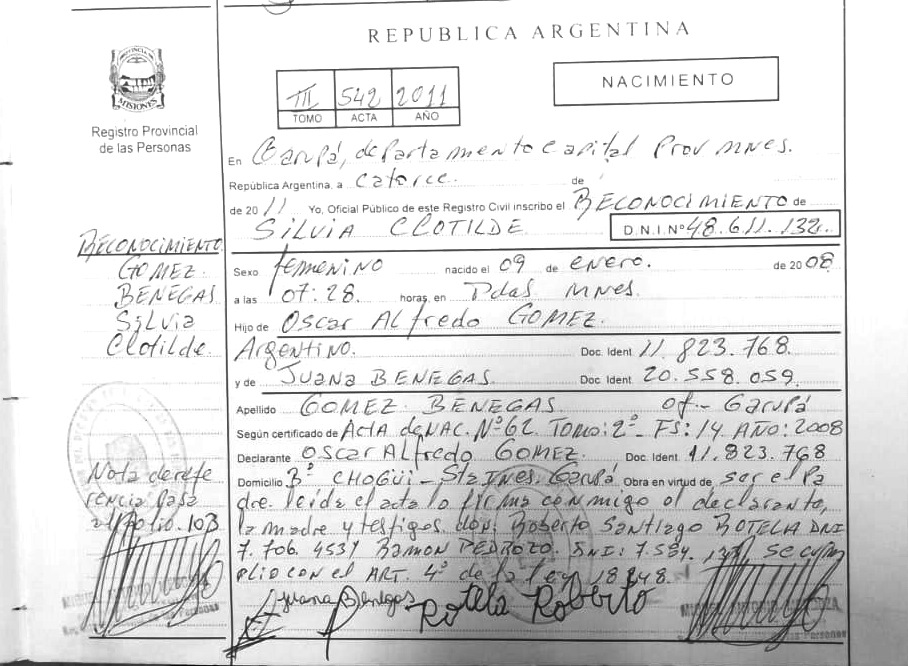 REPUBLICA ARGENTINA
NACIMIENTO
PROVINCIA DE
MISIONES
Registro Provincial
de las Personas
III 542 2011
TOMO ACTA AÑO
En Garupá, departamento Capital Prov mnes.
República Argentina, a catorce. de
de 2011 Yo, Oficial Público de este Registro Civil inscribo el RECONOCIMIENTO de
SILVIA CLOTILDE D.N.I. Nº 48.611.132
Sexo femenino nacido el 09 de enero. de 2008
a las 07:28. horas, en Pdas mnes.
Hijo de Oscar Alfredo GOMEZ.
Argentino. Doc. Ident 11.823.768.
y de Juana BENEGAS Doc. Ident 20.558.059.
Apellido GOMEZ BENEGAS of- Garupá
Según certificado de Acta de NAC. Nº 62 Tomo: 2º - Fs: 14 AÑO: 2008
Declarante Oscar Alfredo GOMEZ. Doc. Ident 11.823.768
Domicilio Bº CHOGÜI - Sta Ines. Garupá Obra en virtud de ser el Pa
dre. leida el acta lo firma conmigo el declarante,
la madre y testigos don: Roberto Santiago ROTELA DNI
7.706.453 y Ramon PEDROZO. DNI: 7.584. se cum
plio con el ART. 4º de la ley 18.248.
Juana Benegas Rotela Roberto
RECONOCIMIENTO
GOMEZ
BENEGAS
Silvia
Clotilde.
Nota de refe
rencia pasa
al folio. 103